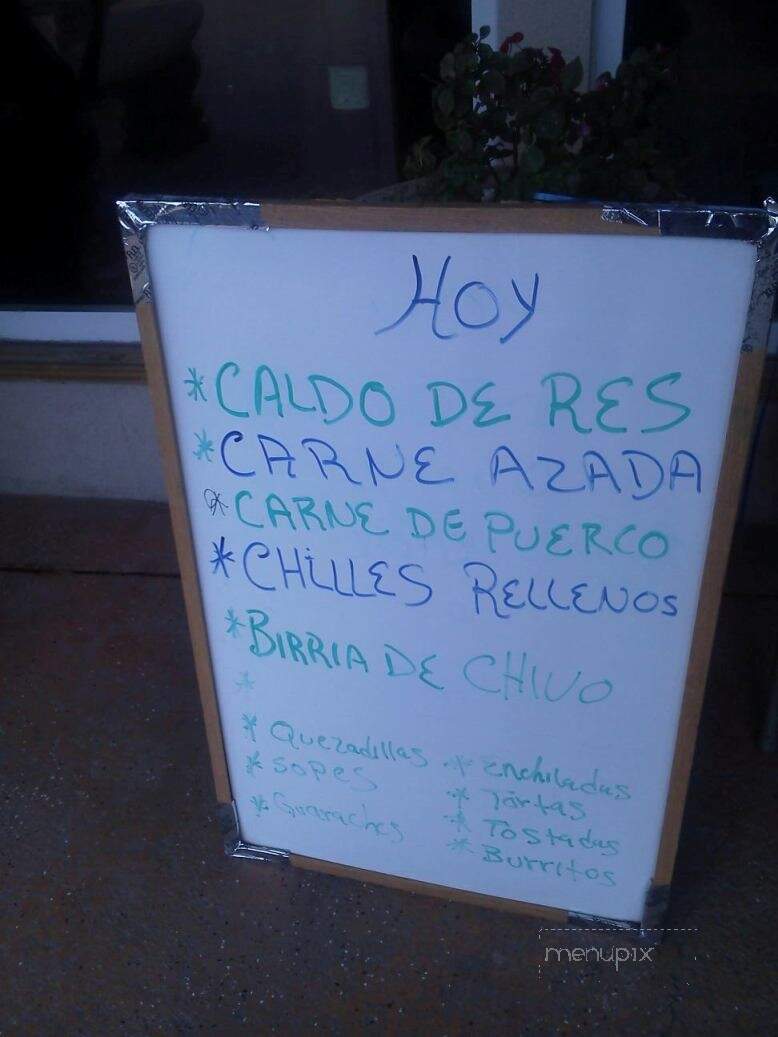 HOY
*CALDO DE RES
*CARNE AZADA
*CARNE DE PUERCO
*CHILLES RELLENOS
*BIRRIA DE CHIVO
*
*Quezadillas
*Sopes
*Guaraches
*Enchiladas
*Tortas
*Tostadas
*Burritos
menupix